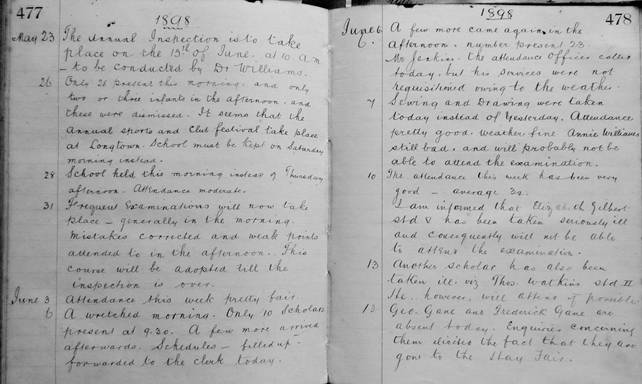 477
1898
May 23 The Annual Inspection is to take
place on the 13th of June. at 10 a.m
- to be conducted by Dr Williams.
26 Only 26 present this morning. and only
two or three infants in the afternoon. and
these were dismissed. It seems that the
annual sports and Club festival take place
at Longtown. School must be kept on Saturday
morning instead.
28 School held this morning instead of Thursday
afternoon. Attendance moderate.
31 Frequent Examinations will now take
place - generally in the morning.
Mistakes corrected and weak points
attended to in the afternoon. This
course will be adopted till the
inspection is over.
June 3 Attendance this week pretty fair
6 A wretched morning. Only 10 Scholars
present at 9.30. A few more arrived
afterwards. Schedules - filled up -
forwarded to the clerk today.
1898
478
June 6. A few more came again in the
afternoon. number present 23.
Mr Jenkins. the attendance Officer called
today. but his services were not
requisitioned owing to the weather.
7 Sewing and Drawing were taken
today instead of Yesterday. Attendance
pretty good. weather fine Annie Williams
still bad. and will probably not be
able to attend the examination.
10 The attendance this week has been very
good - average 32.
I am informed that Elizabeth Gilbert
std V has been taken seriously ill
and consequently will not be able
to attend the examination.
13 Another Scholar has also been
taken ill. viz Thos. Watkins std II
He. however, will attend if possible
13 Geo. Gane and Frederick Gane are
absent today. Enquiries concerning
them elicited the fact that they are
gone to the Hay Fair.